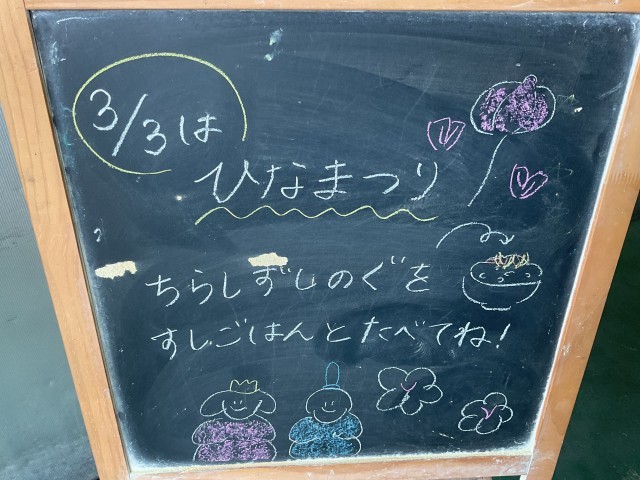 3/3は
ひなまつり
ちらしずしのぐを
すしごはんとたべてね!